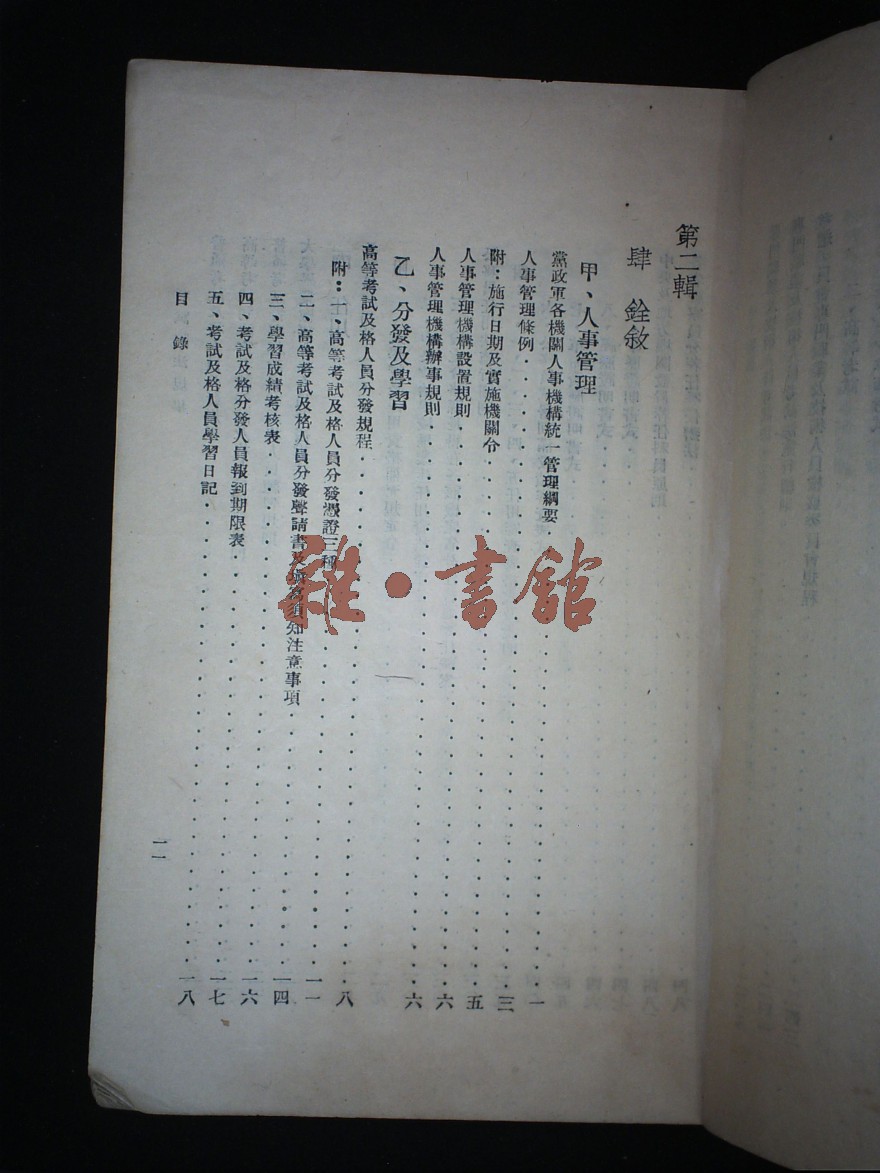 第二輯
肆　銓敘
甲、人事管理
黨政軍各機關人事機構統一管理綱要……一
人事管理條例……三
附：施行日期及實施機關令……五
人事管理機構設置規則……六
人事管理機構辦事規則……六
乙、分發及學習
高等考試及格人員分發規程……八
附：一、高等考試及格人員分發憑證三種……一一
二、高等考試及格人員分發聲請書及填寫須知注意事項……一四
三、學習成績考核表……一六
四、考試及格分發人員報到期限表……一七
五、考試及格人員學習日記……一八
目錄
一一
雜・書館